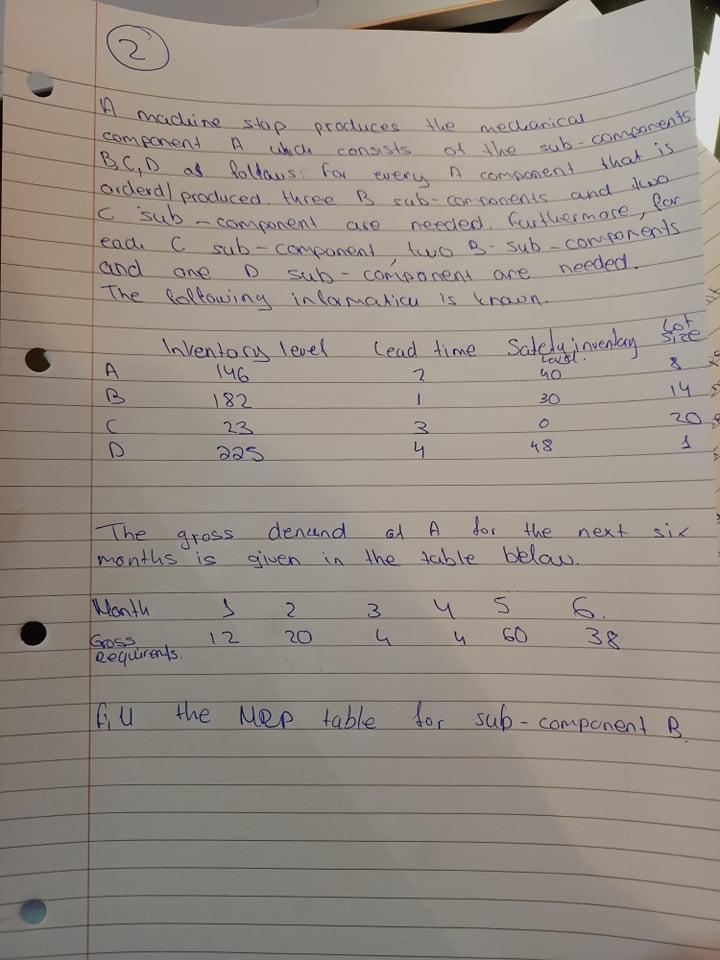 2
A machine stop produces the mechanical
component A which consists of the sub-components
B,C,D as follows: for every A component that is
orderd/produced three B sub-components and two
C sub-component are needed. Furthermore, for
each C sub-component, two B-sub-components
and one D sub-component are needed.
The following information is known.
Inventory level Lead time Safety inventory level. Lot size
A 146 2 40 8
B 182 1 30 14
C 23 3 0 20
D 225 4 48 1
The gross demand of A for the next six
months is given in the table below.
Month 1 2 3 4 5 6.
Gross 12 20 4 4 60 38
Requirents.
Fill the MRP table for sub-component B.